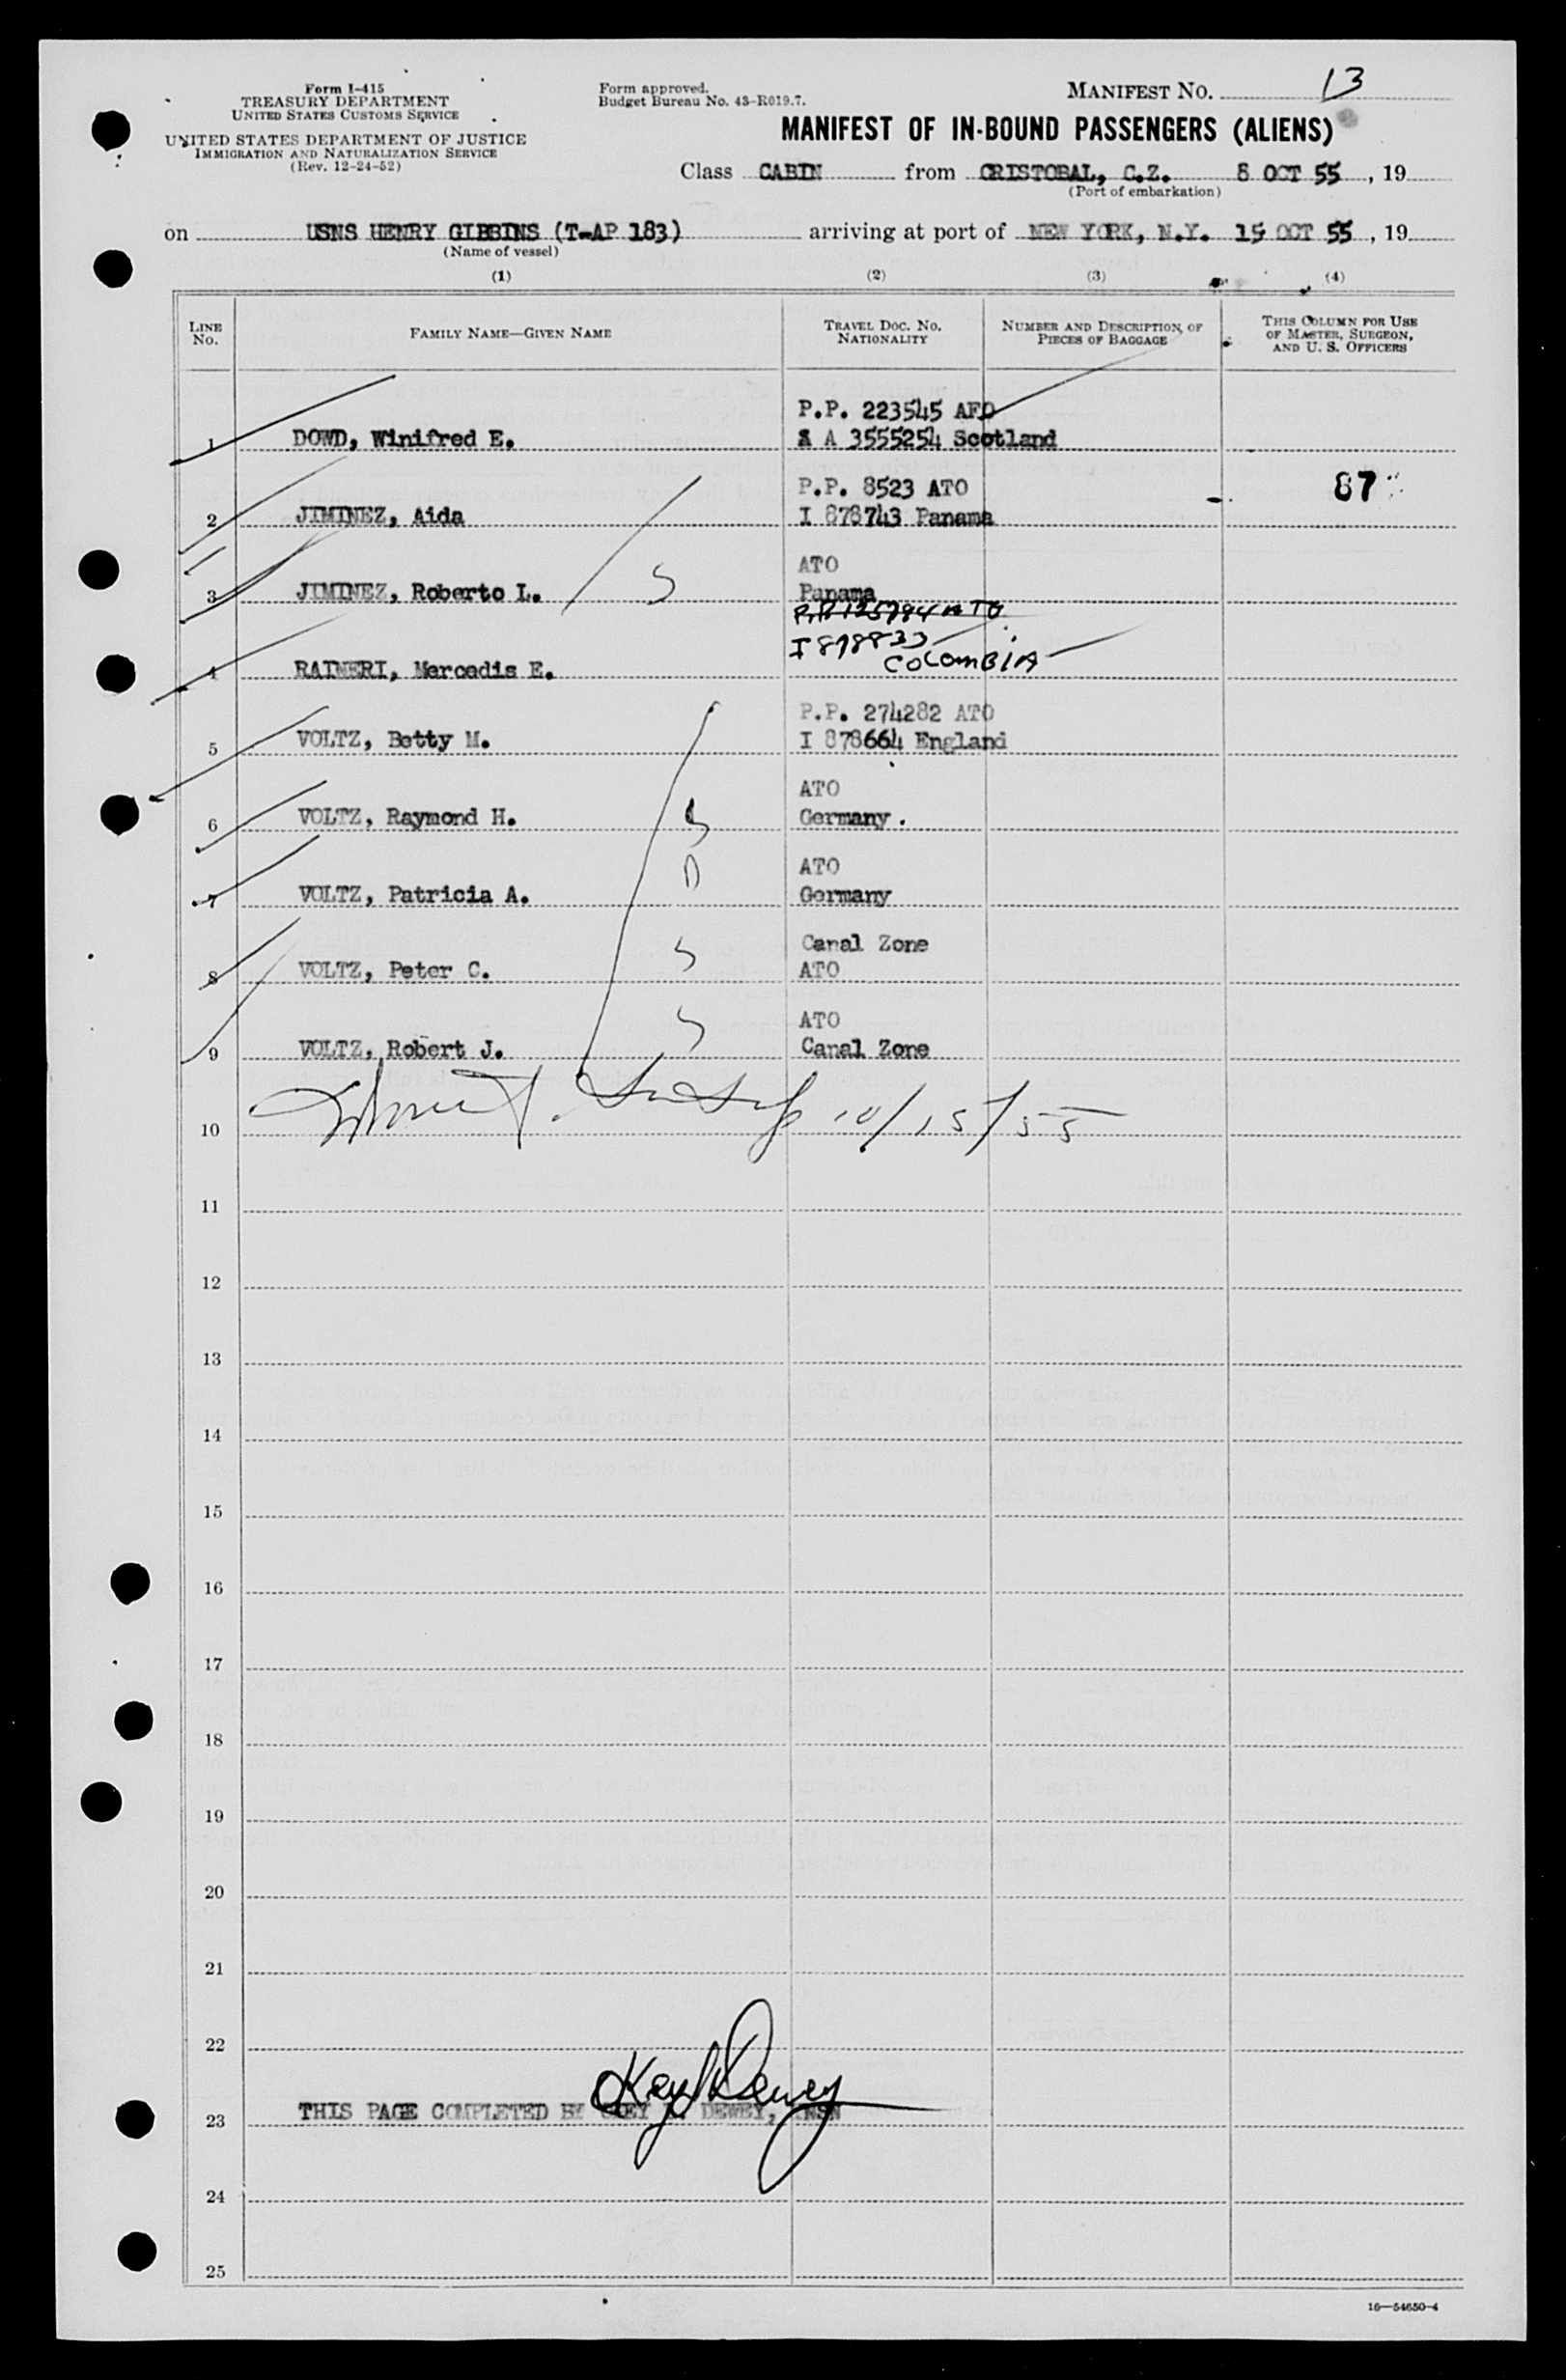 Form I-415
TREASURY DEPARTMENT
UNITED STATES CUSTOMS SERVICE
UNITED STATES DEPARTMENT OF JUSTICE
IMMIGRATION AND NATURALIZATION SERVICE
(Rev. 12-24-52)
Form approved.
Budget Bureau No. 43-R019.7.
MANIFEST NO. 13
MANIFEST OF IN-BOUND PASSENGERS (ALIENS)
Class CABIN from CRISTOBAL, C.Z. 8 OCT 55, 19
(Port of embarkation)
on USNS HENRY GIBBINS (T-AP 183) arriving at port of NEW YORK, N.Y. 15 OCT 55, 19
(Name of vessel)
(1) (2) (3) (4)
LINE NO. FAMILY NAME—GIVEN NAME TRAVEL DOC. NO. NATIONALITY NUMBER AND DESCRIPTION OF PIECES OF BAGGAGE THIS COLUMN FOR USE OF MASTER, SURGEON, AND U. S. OFFICERS
P.P. 223545 AFO
1 DOWD, Winifred E. & A 3555254 Scotland
P.P. 8523 ATO 87
2 JIMINEZ, Aida I 878743 Panama
ATO
3 JIMINEZ, Roberto L. S Panama
P.P. 125794 ATO
I 878833
COLOMBIA
4 RAINERI, Mercedis E.
P.P. 274282 ATO
5 VOLTZ, Betty M. I 878664 England
ATO
6 VOLTZ, Raymond H. S Germany.
ATO
7 VOLTZ, Patricia A. D Germany
Canal Zone
8 VOLTZ, Peter C. S ATO
ATO
9 VOLTZ, Robert J. S Canal Zone
10/15/55
10
11
12
13
14
15
16
17
18
19
20
21
22
Key Dewey
23 THIS PAGE COMPLETED BY DEWEY,
24
25
16—54650-4